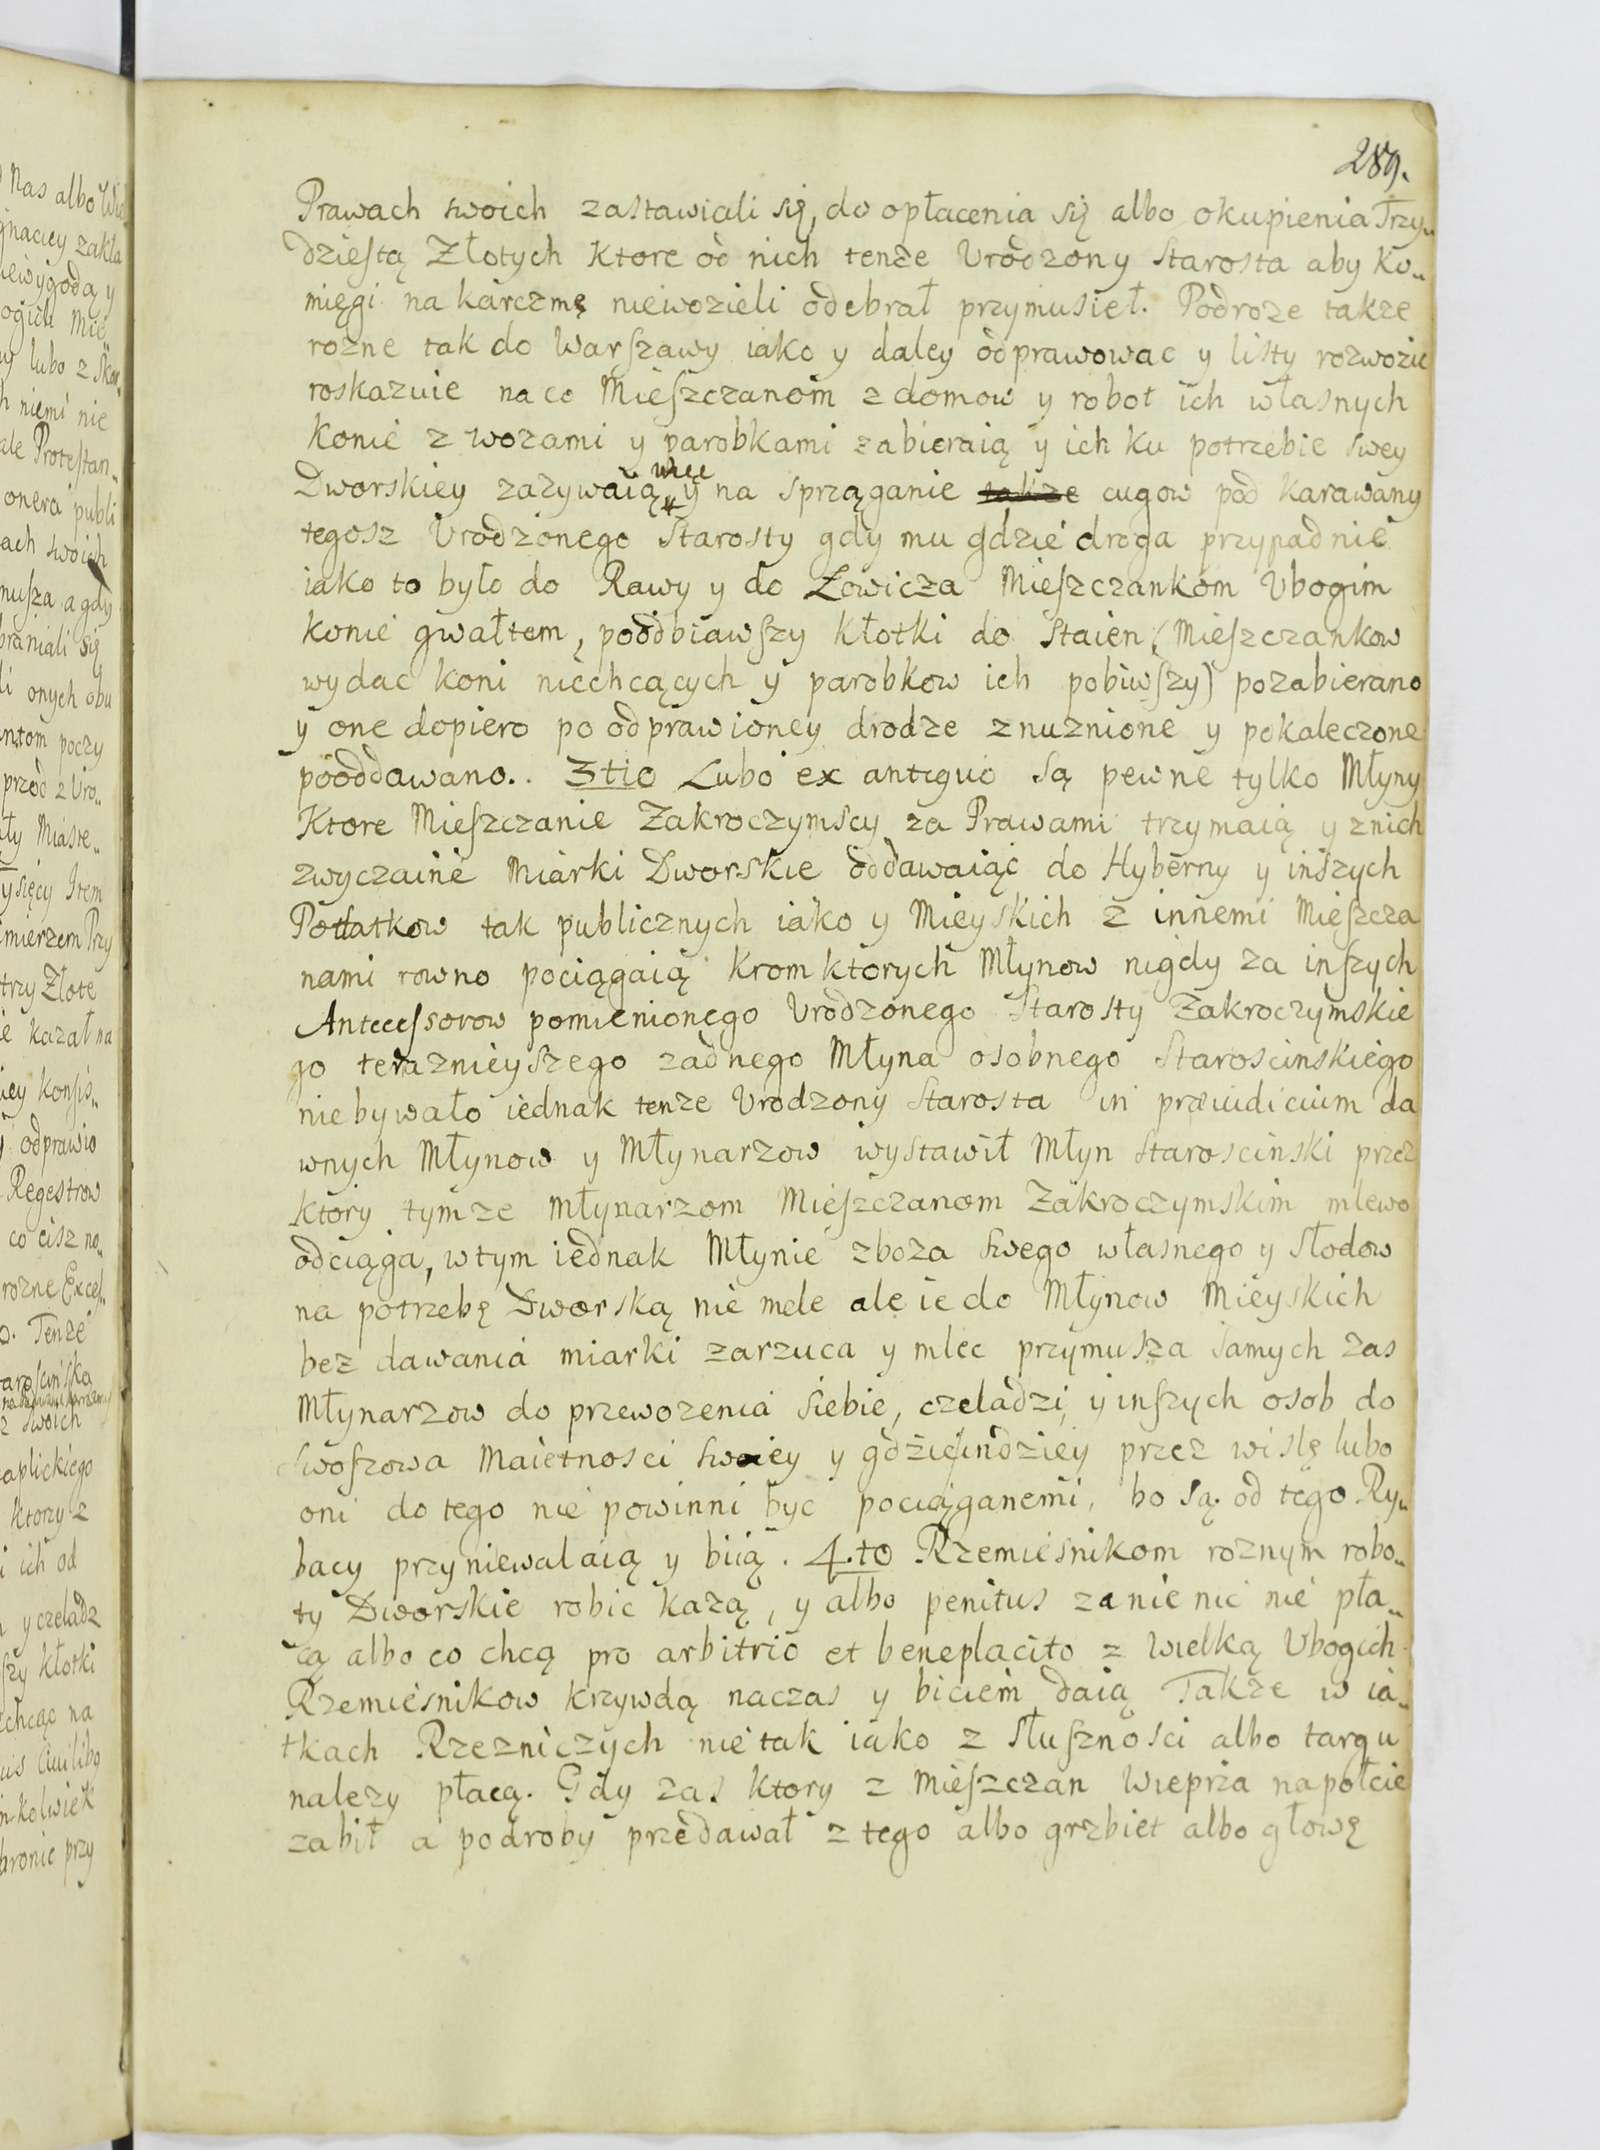 289.
Prawach swoich zastawiali się, do opłacenia się albo okupienia Trzy„
dziestą Złotych Ktore od nich tenze Vrodzony Starosta aby Ko„
mięgi na karczmę niewozieli odebrał przymusieł. Podroze takze
rozne tak do Warszawy iako y daley odprawowac y listy rozwozic
roskazuie na co Mieszczanom z domow y robot ich własnych
Konie z wozami y parobkami zabieraią y ich ku potrzebie swey
Dworskiey zazywaią y na sprząganie takze cugow pod Karawany
tegosz Vrodzonego Starosty gdy mu gdzie droga przypadnie
iako to było do Rawy y do Łowicza Mieszczankom Vbogim
konie gwałtem, poodbiawszy Kłotki do Staien (Mieszczankow
wydac koni niechcących y parobkow ich pobiwszy) pozabierano
y one dopiero po odprawioney drodze znuznione y pokaleczone
pooddawano.. 3tio Lubo ex antiquo są pewne tylko Młyny
Ktore Mieszczanie Zakroczymscy za Prawami trzymaią y znich
zwyczaine Miarki Dworskie oddawaiąc do Hyberny y inszych
Podatkow tak publicznych iako y Mieyskich z innemi Mieszcza
nami rowno pociągaią krom ktorych Młynow nigdy za inszych
Antecessorow pomienionego Vrodzonego Starosty Zakroczymskie
go teraznieyszego zadnego Młyna osobnego Staroscinskiego
niebywało iednak tenze Vrodzony Starosta in præiudicium da
wnych Młynow y Młynarzow wystawił Młyn Staroscinski przez
ktory tymze młynarzom Mieszczanom Zakroczymskim mlewo
odciąga, w tym iednak Młynie zboza swego własnego y Słodow
na potrzebę Dworską nie mele ale ie do Młynow Mieyskich
bez dawania miarki zarzuca y mlec przymusza samych zas
Młynarzow do przewozenia siebie, czeladzi y inszych osob do
Swoszowa Maietnosci swoiey y gdzieindziey przez wislę lubo
oni do tego nie powinni byc pociąganemi, bo są od tego Ry„
bacy przyniewalaią y biią. 4.to Rzemiesnikom roznym robo„
ty Dworskie robic kazą, y albo penitus zanie nic nie pła„
cą albo co chcą pro arbitrio et beneplacito z wielką Vbogich
Rzemiesnikow krzywdą naczas y biciem daią Takze w ia„
tkach Rzezniczych nie tak iako z słusznosci albo targu
nalezy płacą. Gdy zas ktory z Mieszczan Wieprza napołcie
zabił a podroby przedawał z tego albo grzbiet albo głowę